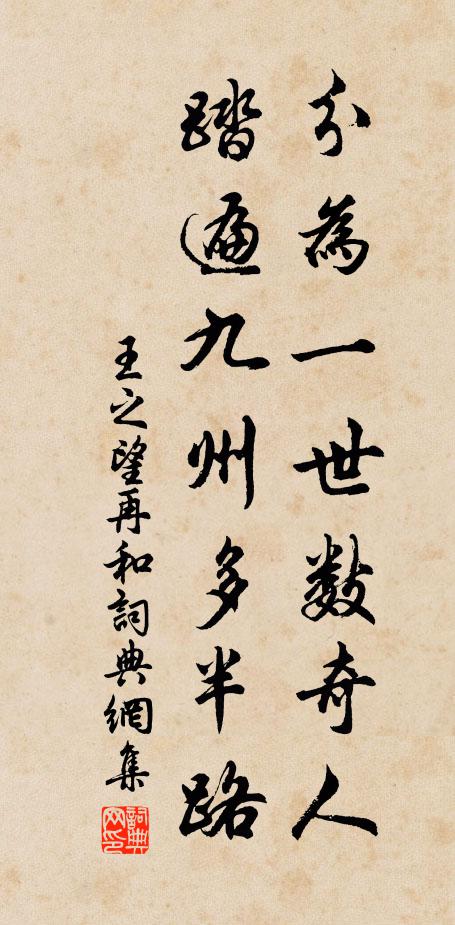 分為一世數奇人
踏遍九州多半路
王之望再和詞典網集
詞典
网印